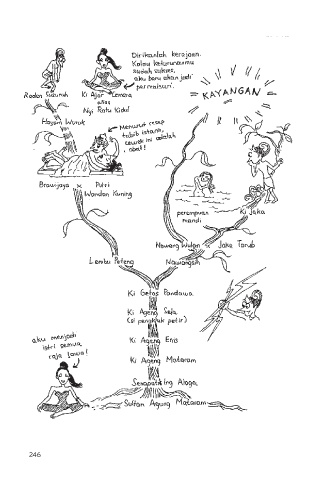 Dirikanlah kerajaan.
Kalau keturunanmu
sudah sukses,
aku baru akan jadi
permaisuri.
KAYANGAN
Raden Susuruh
Ki Ajar Cemara
alias
Nyi Ratu Kidul
Hayam Wuruk
Menurut resep
tabib istana,
cewek ini adalah
obat!
Brawijaya × Putri
Wandan Kuning
perempuan
mandi
Ki Jaka
Nawang Wulan × Jaka Tarub
Lembu Peteng
Nawangsih
Ki Getas Pandawa
Ki Ageng Sela
(si penangkap petir)
Ki Ageng Enis
Ki Ageng Mataram
Senapati Ing Alaga
Sultan Agung Mataram
aku menjadi
istri semua
raja Jawa!
246